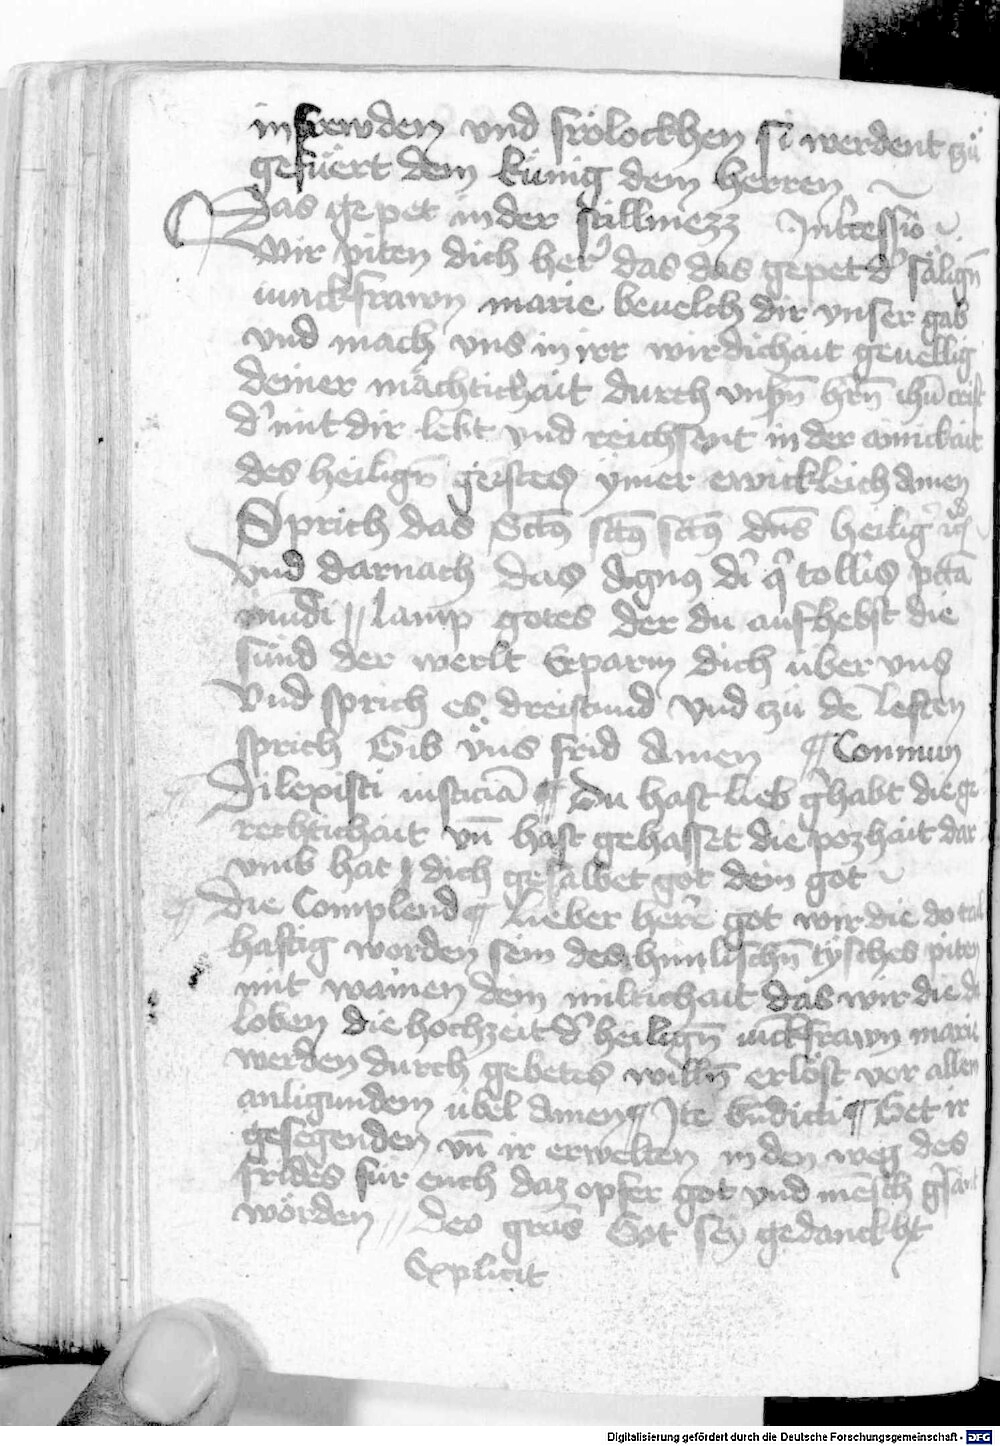 in frewden vnd frölockhen si werdent zü
gefüert dem künig dem herren
Das gepet in der stillmezz Intressio
Wir piten dich her̄ das das gepet d' säligñ
iunckfrawn marie beuelch dir vnser gab
vnd mach vns in irr wirdichait geuellig
deiner mächtichait durch vnsñ hrñ ihū crist
d' mit dir lebt vnd reichsent in der ainickait
des heiligñ geistes ymer ewickleich Amen
Sprich das Sctūs sctūs sctūs dns heilig
Vnd darnach das Agnus di q tollis pctā
mūdi // lamp gotes der du aufhebst die
sünd der werlt Erparm dich über vns
Vnd sprich es dreistund Vnd zü dē lesten
sprich Gib vns frid Amen ¶ Commun
Dilexisti iusticiā ¶ Du hast lieb ghabt die ge
rechtichait vñ hast gehasset die pozhait dar
vmb hat dich gesalbet got dein got
die Complend ¶ lieber herre got wir die do tail
haftig worden sein des himlischñ tysches piten
mit wainen dein miltichait das wir die do
loben die hochzeit d' heiligñ iuckfrawn marie
werden durch gebetes willñ erlöst vor allen
anligunden übel Amen ¶ Ite bñdicti ¶ Get ir
gesegenden vñ ir erwelten in den weg des
frides für euch daz opfer got vnd mēsch gsant
wörden // Deo gras Got sey gedanckht
Explicit
Digitalisierung gefördert durch die Deutsche Forschungsgemeinschaft - DFG